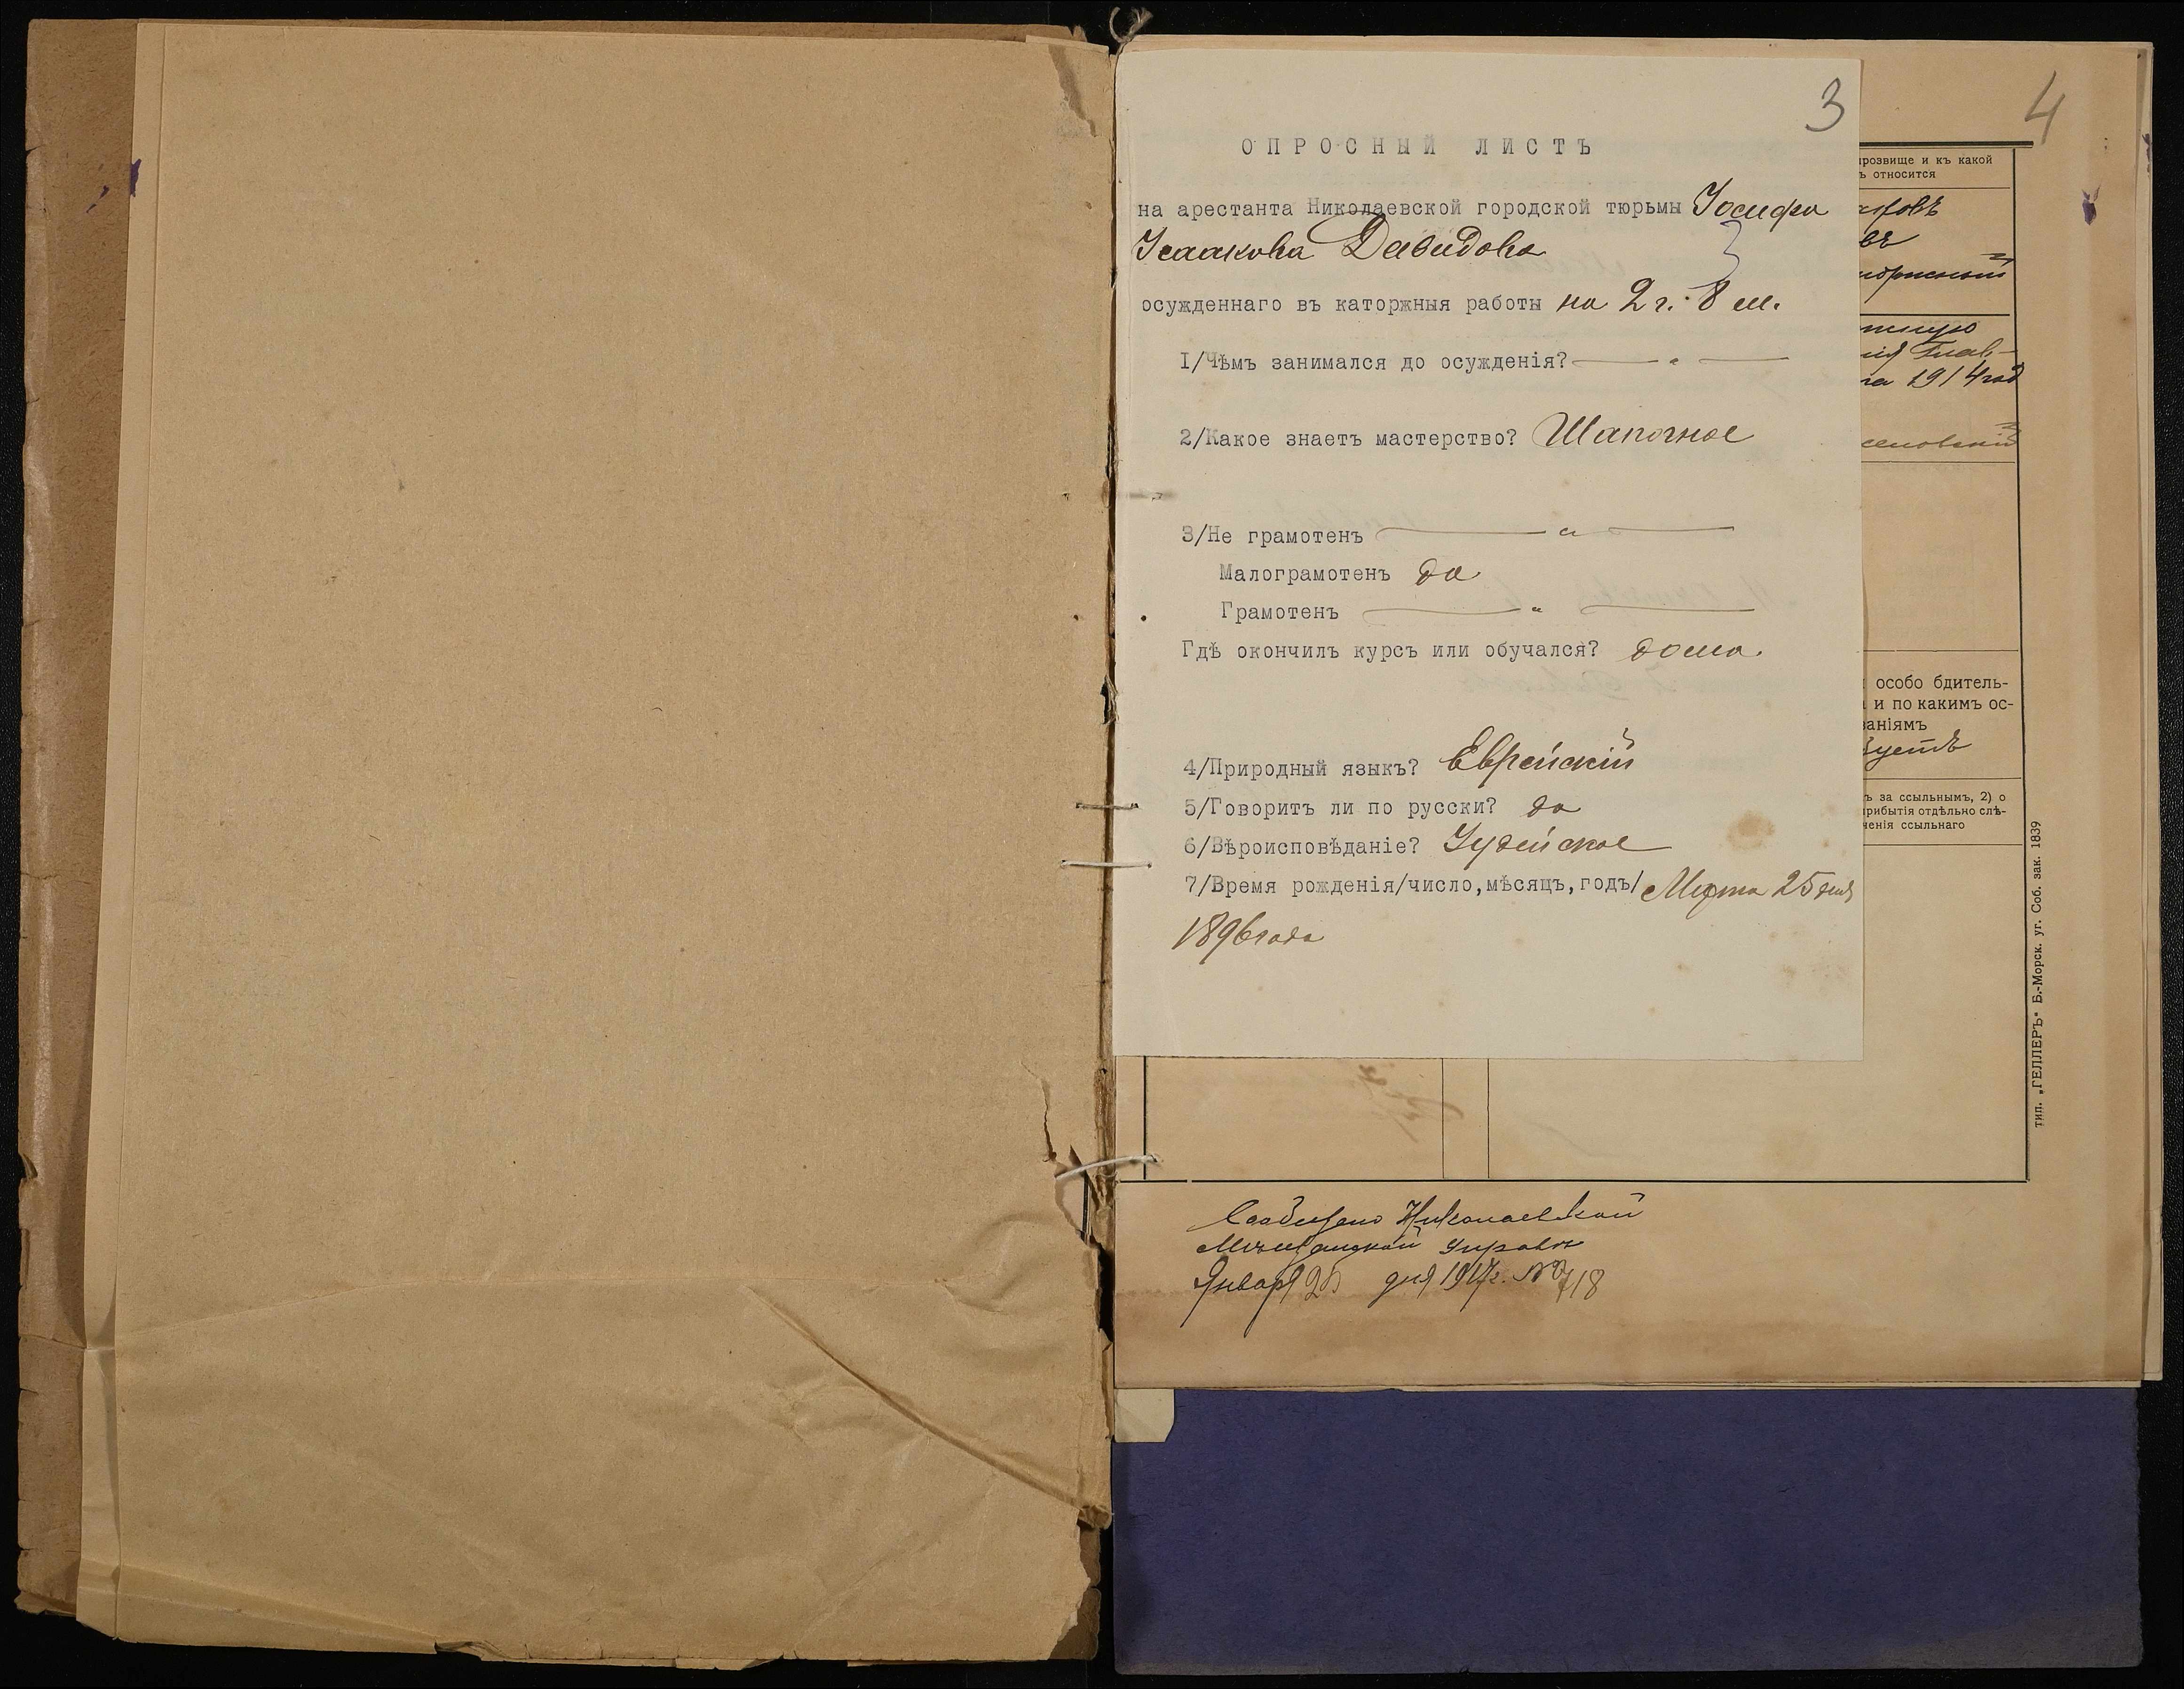 3
ОПРОСНЫЙ ЛИСТЪ
на арестанта Николаевской городской тюрьмы Іосифа
Исаакова Давидова
осужденнаго въ каторжныя работы на 2 г. 8 м.
1/Чѣмъ занимался до осужденія? — " —
2/Какое знаетъ мастерство? Шапочное
3/Не грамотенъ — " —
Малограмотенъ да
Грамотенъ — " —
Гдѣ окончилъ курсъ или обучался? дома.
4/Природный языкъ? Еврейскій
5/Говоритъ ли по русски? да
6/Вѣроисповѣданіе? Іудейское
7/Время рожденія/число,мѣсяцъ,годъ/ Марта 25 дня
1896 года
4
розвище и къ какой
ъ относится
овъ
въ
на 1914 год
особо бдитель-
и по какимъ ос-
ваніямъ
ъ за ссыльнымъ, 2) о
прибытія отдѣльно слѣ-
ченія ссыльнаго
тип. „ГЕЛЛЕРЪ" Б.-Морск. уг. Соб. зак. 1839
Сообщено Николаевской
Мѣщанской Управѣ
Января дня 1917 г. № 718